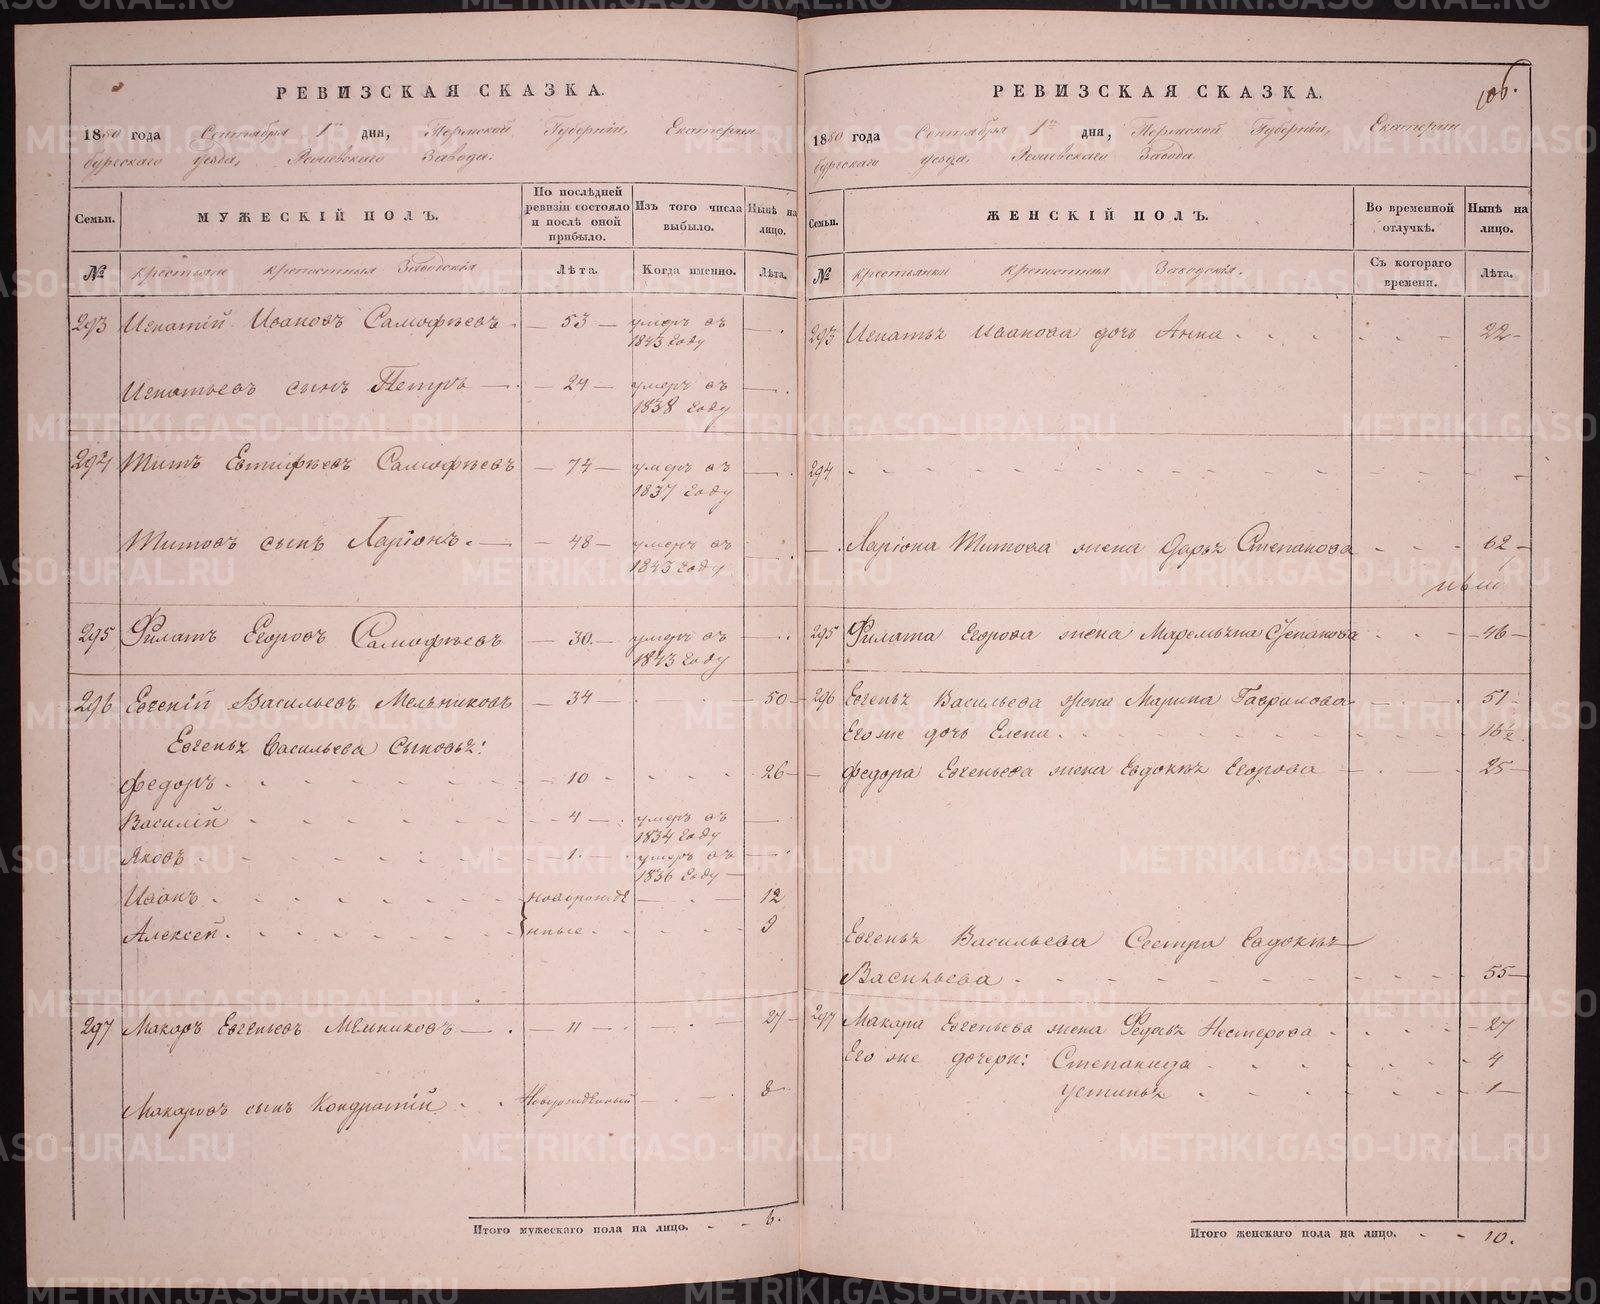 РЕВИЗСКАЯ СКАЗКА.
1850 года Сентября 1го дня, Пермской Губерніи, Екатерин
бургскаго уезда, Режевскаго Завода:
Семьи.
МУЖЕСКІЙ ПОЛЪ.
По послѣдней ревизіи состояло и послѣ оной прибыло.
Изъ того числа выбыло.
Нынѣ на лицо.
№ крестьяне крепостныя Заводскія
Лѣта.
Когда именно.
Лѣта.
293 Игнатій Ивановъ Самофѣевъ 53 умеръ въ
1843 году
Игнатьевъ сынъ Петръ 24 умеръ въ
1838 году
294 Титъ Евтифѣевъ Самофѣевъ 74 умеръ въ
1837 году
Титовъ сынъ Ларіонъ 48 умеръ въ
1843 году
295 Филатъ Егоровъ Самофѣевъ 30 умеръ въ
1843 году
296 Евгеній Васильевъ Мельниковъ 34 50
Евгенья Васильева Сыновья:
Федоръ 10 26
Василій 4 умеръ въ
1834 году
Яковъ 1 умеръ въ
1836 году
Иванъ новорожде 12
Алексей нные 9
297 Макаръ Евгеньевъ Мельниковъ 11 27
Макаровъ сынъ Кондратій Новорожденный 8
Итого мужескаго пола на лицо. 6.
106.
РЕВИЗСКАЯ СКАЗКА.
1850 года Сентября 1го дня, Пермской Губерніи, Екатерин
бургскаго уезда, Режевскаго Завода
Семьи.
ЖЕНСКІЙ ПОЛЪ.
Во временной отлучкѣ.
Нынѣ на лицо.
№ крестьянки крепостныя Заводскія.
Съ котораго времени.
Лѣта.
293 Игнатья Иванова дочь Анна 22
294
Ларіона Титова жена Дарья Степанова 62
295 Филата Егорова жена Маремьяна Степанова 46
296 Евгенья Васильева жена Марина Гаврилова 51
Его же дочь Елена
Федора Евгеньева жена Евдокья Егорова 25
Евгенья Васильева Сестра Евдокья
Васильева 55
297 Макара Евгеньева жена Федосья Нестерова 27
Его же дочери: Степанида 4
Устинья 1
Итого женскаго пола на лицо. 10.
METRIKI.GASO-URAL.RU